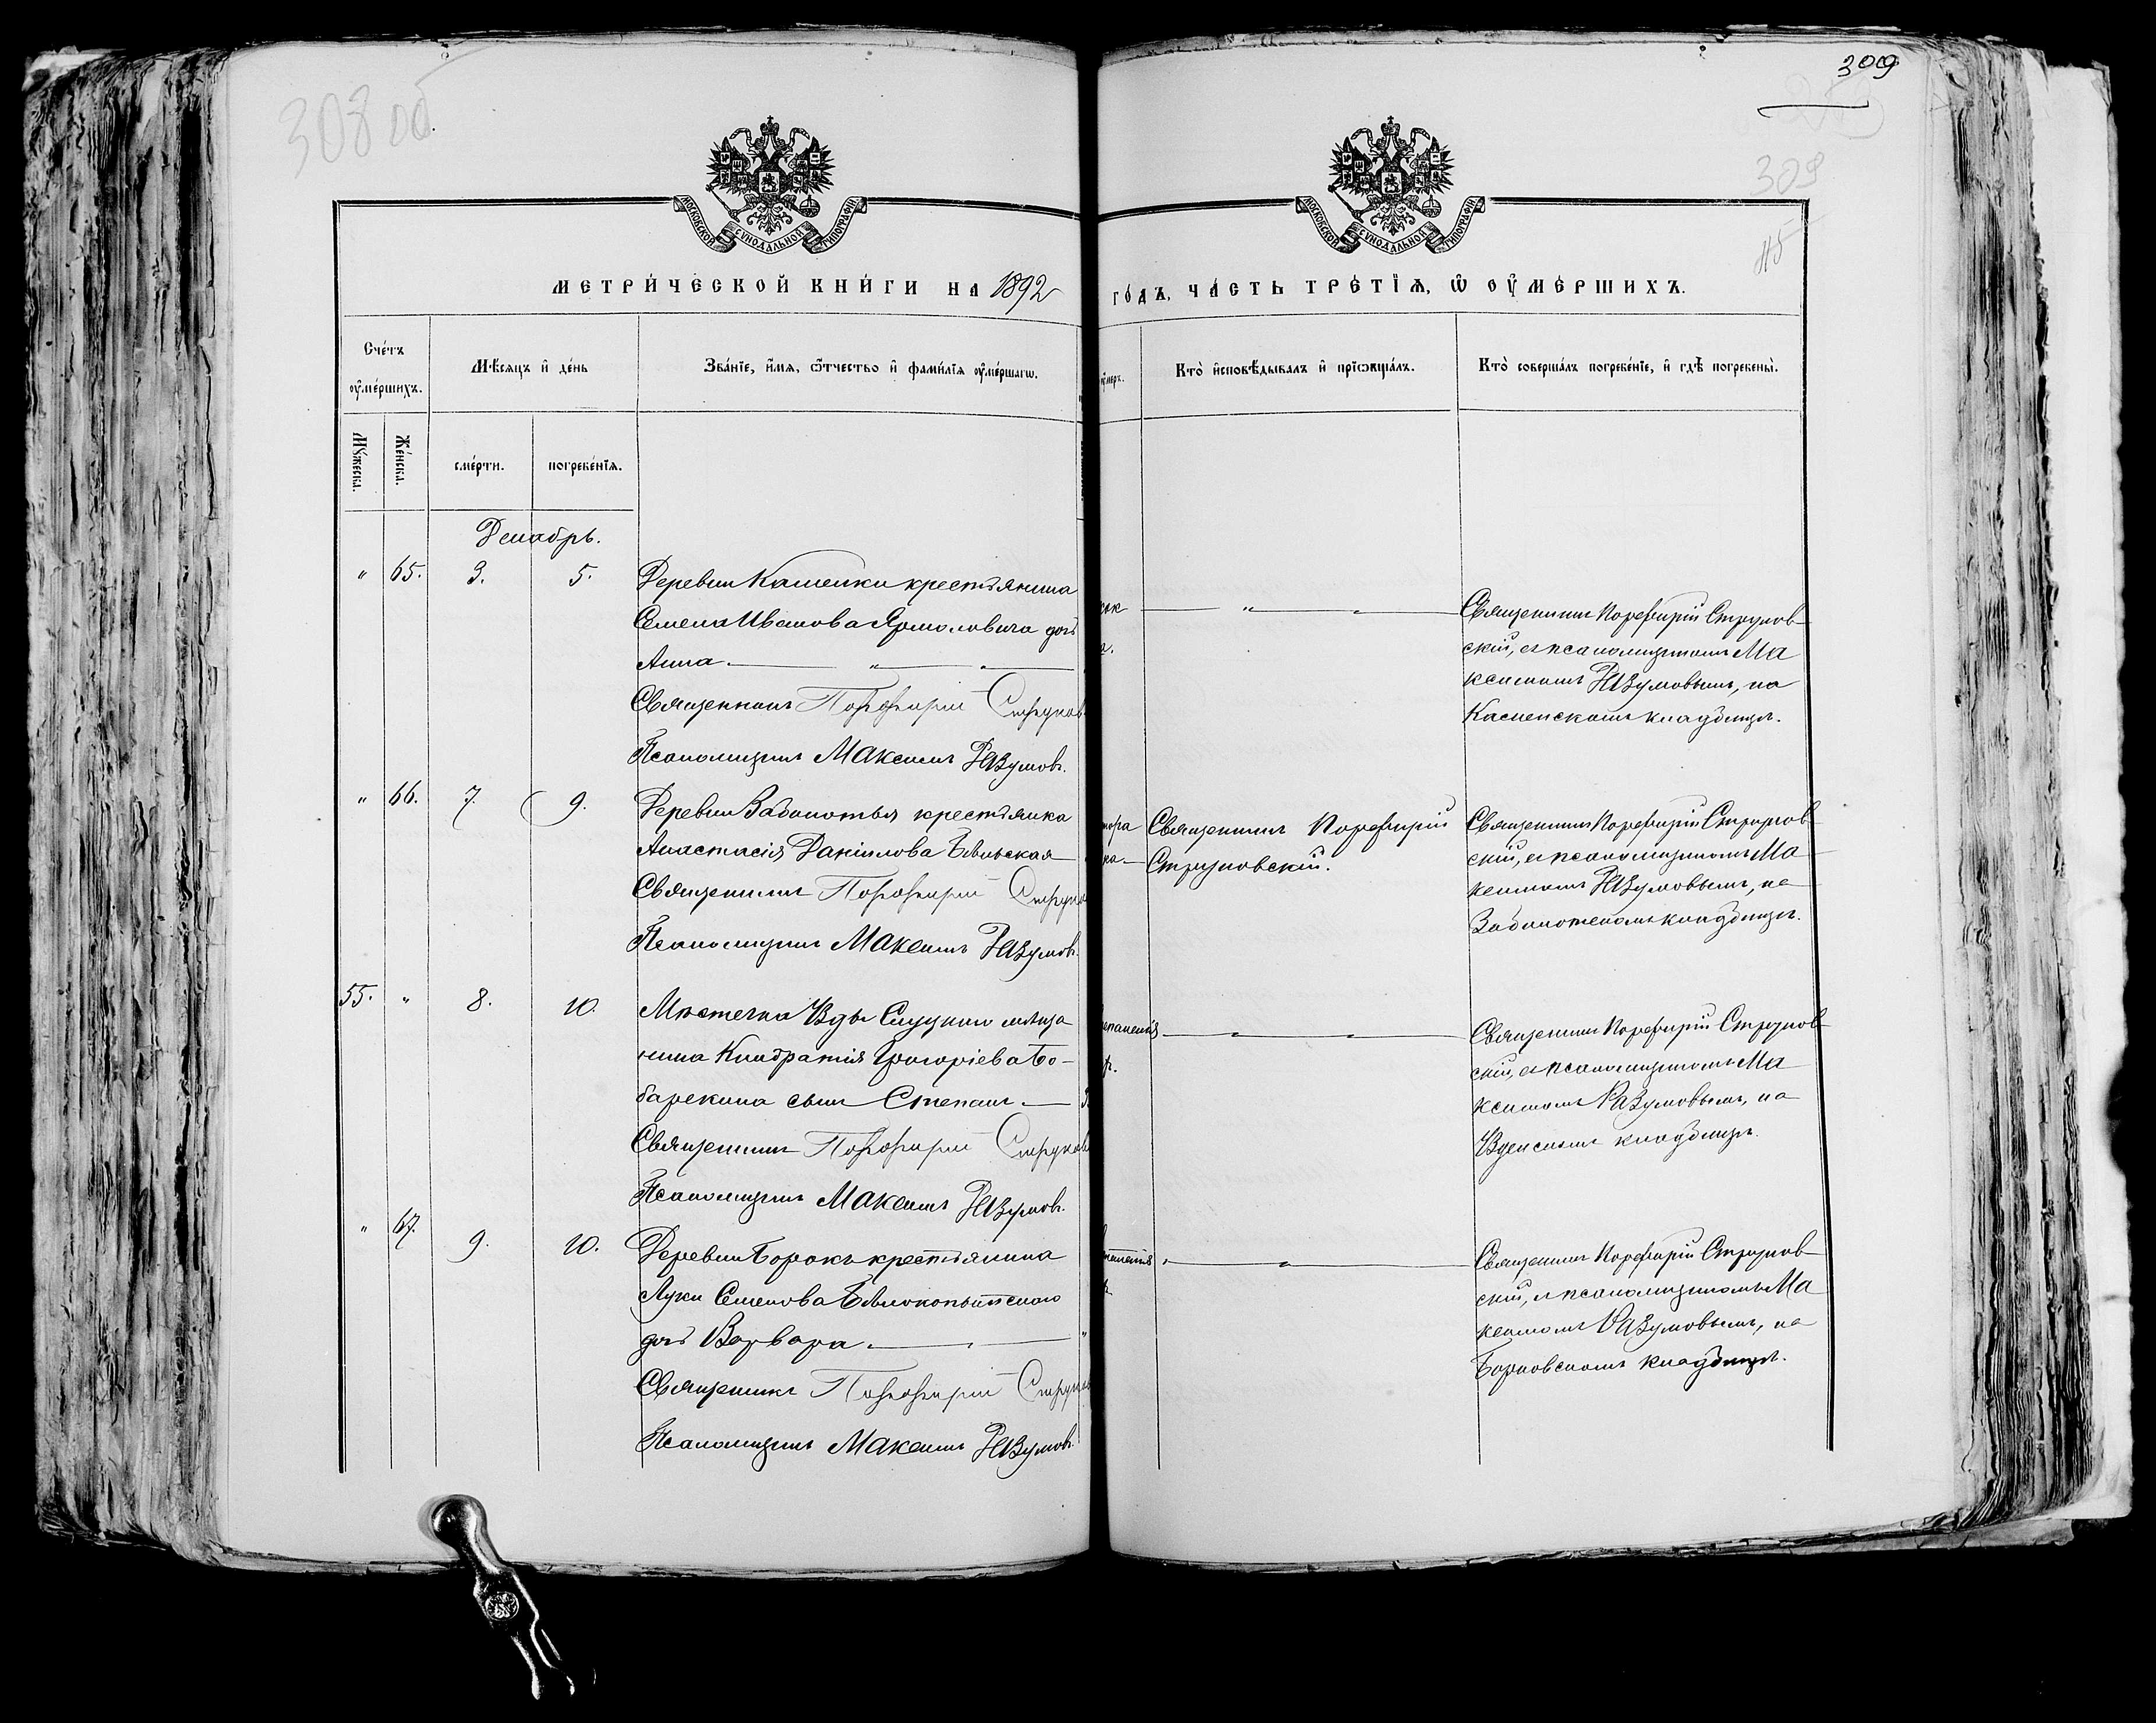 308 об
309
309
115
МОСКОВСКОЙ СѴНОДАЛЬНОЙ ТИПОГРАФІИ
МОСКОВСКОЙ СѴНОДАЛЬНОЙ ТИПОГРАФІИ
МЕТРИ́ЧЕСКОЙ КНИ́ГИ НА 1892 ГО́ДЪ, ЧА́СТЬ ТРЕ́ТЇѦ, Ѽ ОУ҆МЕ́РШИХЪ.
Сче́тъ оу҆ме́ршихъ.
Мѣ́сяцъ и҆ де́нь
Зва́нїе, и҆́мѧ, ѻ҆́тчество и҆ фами́лїѧ оу҆ме́ршагѡ.
Кто̀ и҆сповѣ́дывалъ и҆ прїѡбща́лъ.
Кто̀ соверша́лъ погребе́нїе, и҆ гдѣ̀ погребены̀.
Мꙋ́жеска.
Же́нска.
сме́рти.
погребе́нїѧ.
Декабрь.
" 65. 3. 5. Деревни Каменки крестьянина
Семена Иванова Ярмоловича дочь
Анна.
Священникъ Порфирій Струков
Псаломщикъ Максимъ Разумовъ.
Священникъ Порфирій Струков
скій, съ псаломщикомъ Ма
ксимомъ Разумовымъ, на
Каменскомъ кладбищѣ.
" 66. 7. 9. Деревни Заболотья крестьянка
Анастасія Даніилова Бѣльская
Священникъ Порфирій Струко
Псаломщикъ Максимъ Разумовъ.
Священникъ Порфирій
Струковскій.
Священникъ Порфирій Струков
скій, съ псаломщикомъ Ма
ксимомъ Разумовымъ, на
Заболотскомъ кладбищѣ.
55. " 8. 10. Мѣстечка Узды Слуцкий мѣща
нина Кондратія Григоріева Бо-
барекина сынъ Степанъ.
Священникъ Порфирій Струков
Псаломщикъ Максимъ Разумовъ.
Священникъ Порфирій Струков
скій, съ псаломщикомъ Ма
ксимомъ Разумовымъ, на
Узденскомъ кладбищѣ.
" 67. 9. 10. Деревни Борокъ крестьянина
Луки Семенова Бѣлокопытского
дочь Варвара.
Священникъ Порфирій Струко
Псаломщикъ Максимъ Разумовъ.
Священникъ Порфирій Струков
скій, съ псаломщикомъ Ма
ксимомъ Разумовымъ, на
Борковскомъ кладбищѣ.